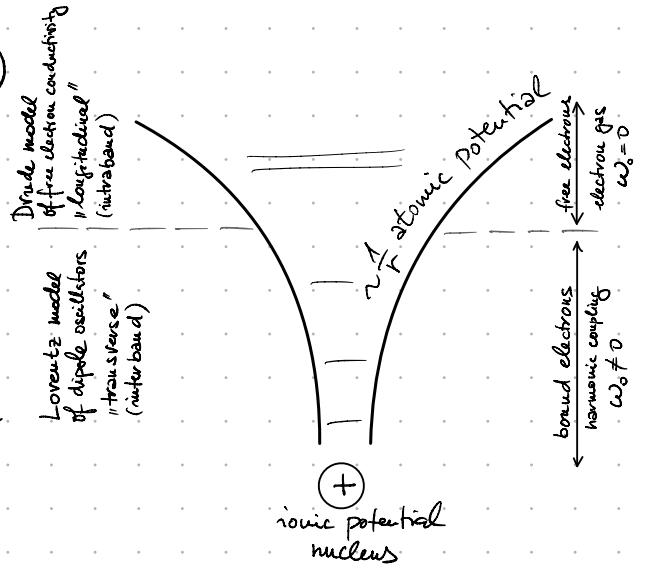 Drude model
of free electron conductivity
„longitudinal"
(intraband)
Lorentz model
of dipole oscillators
„transverse"
(interband)
~ 1/r atomic potential
free electrons
electron gas
ω₀ = 0
bound electrons
harmonic coupling
ω₀ ≠ 0
+
ionic potential
nucleus